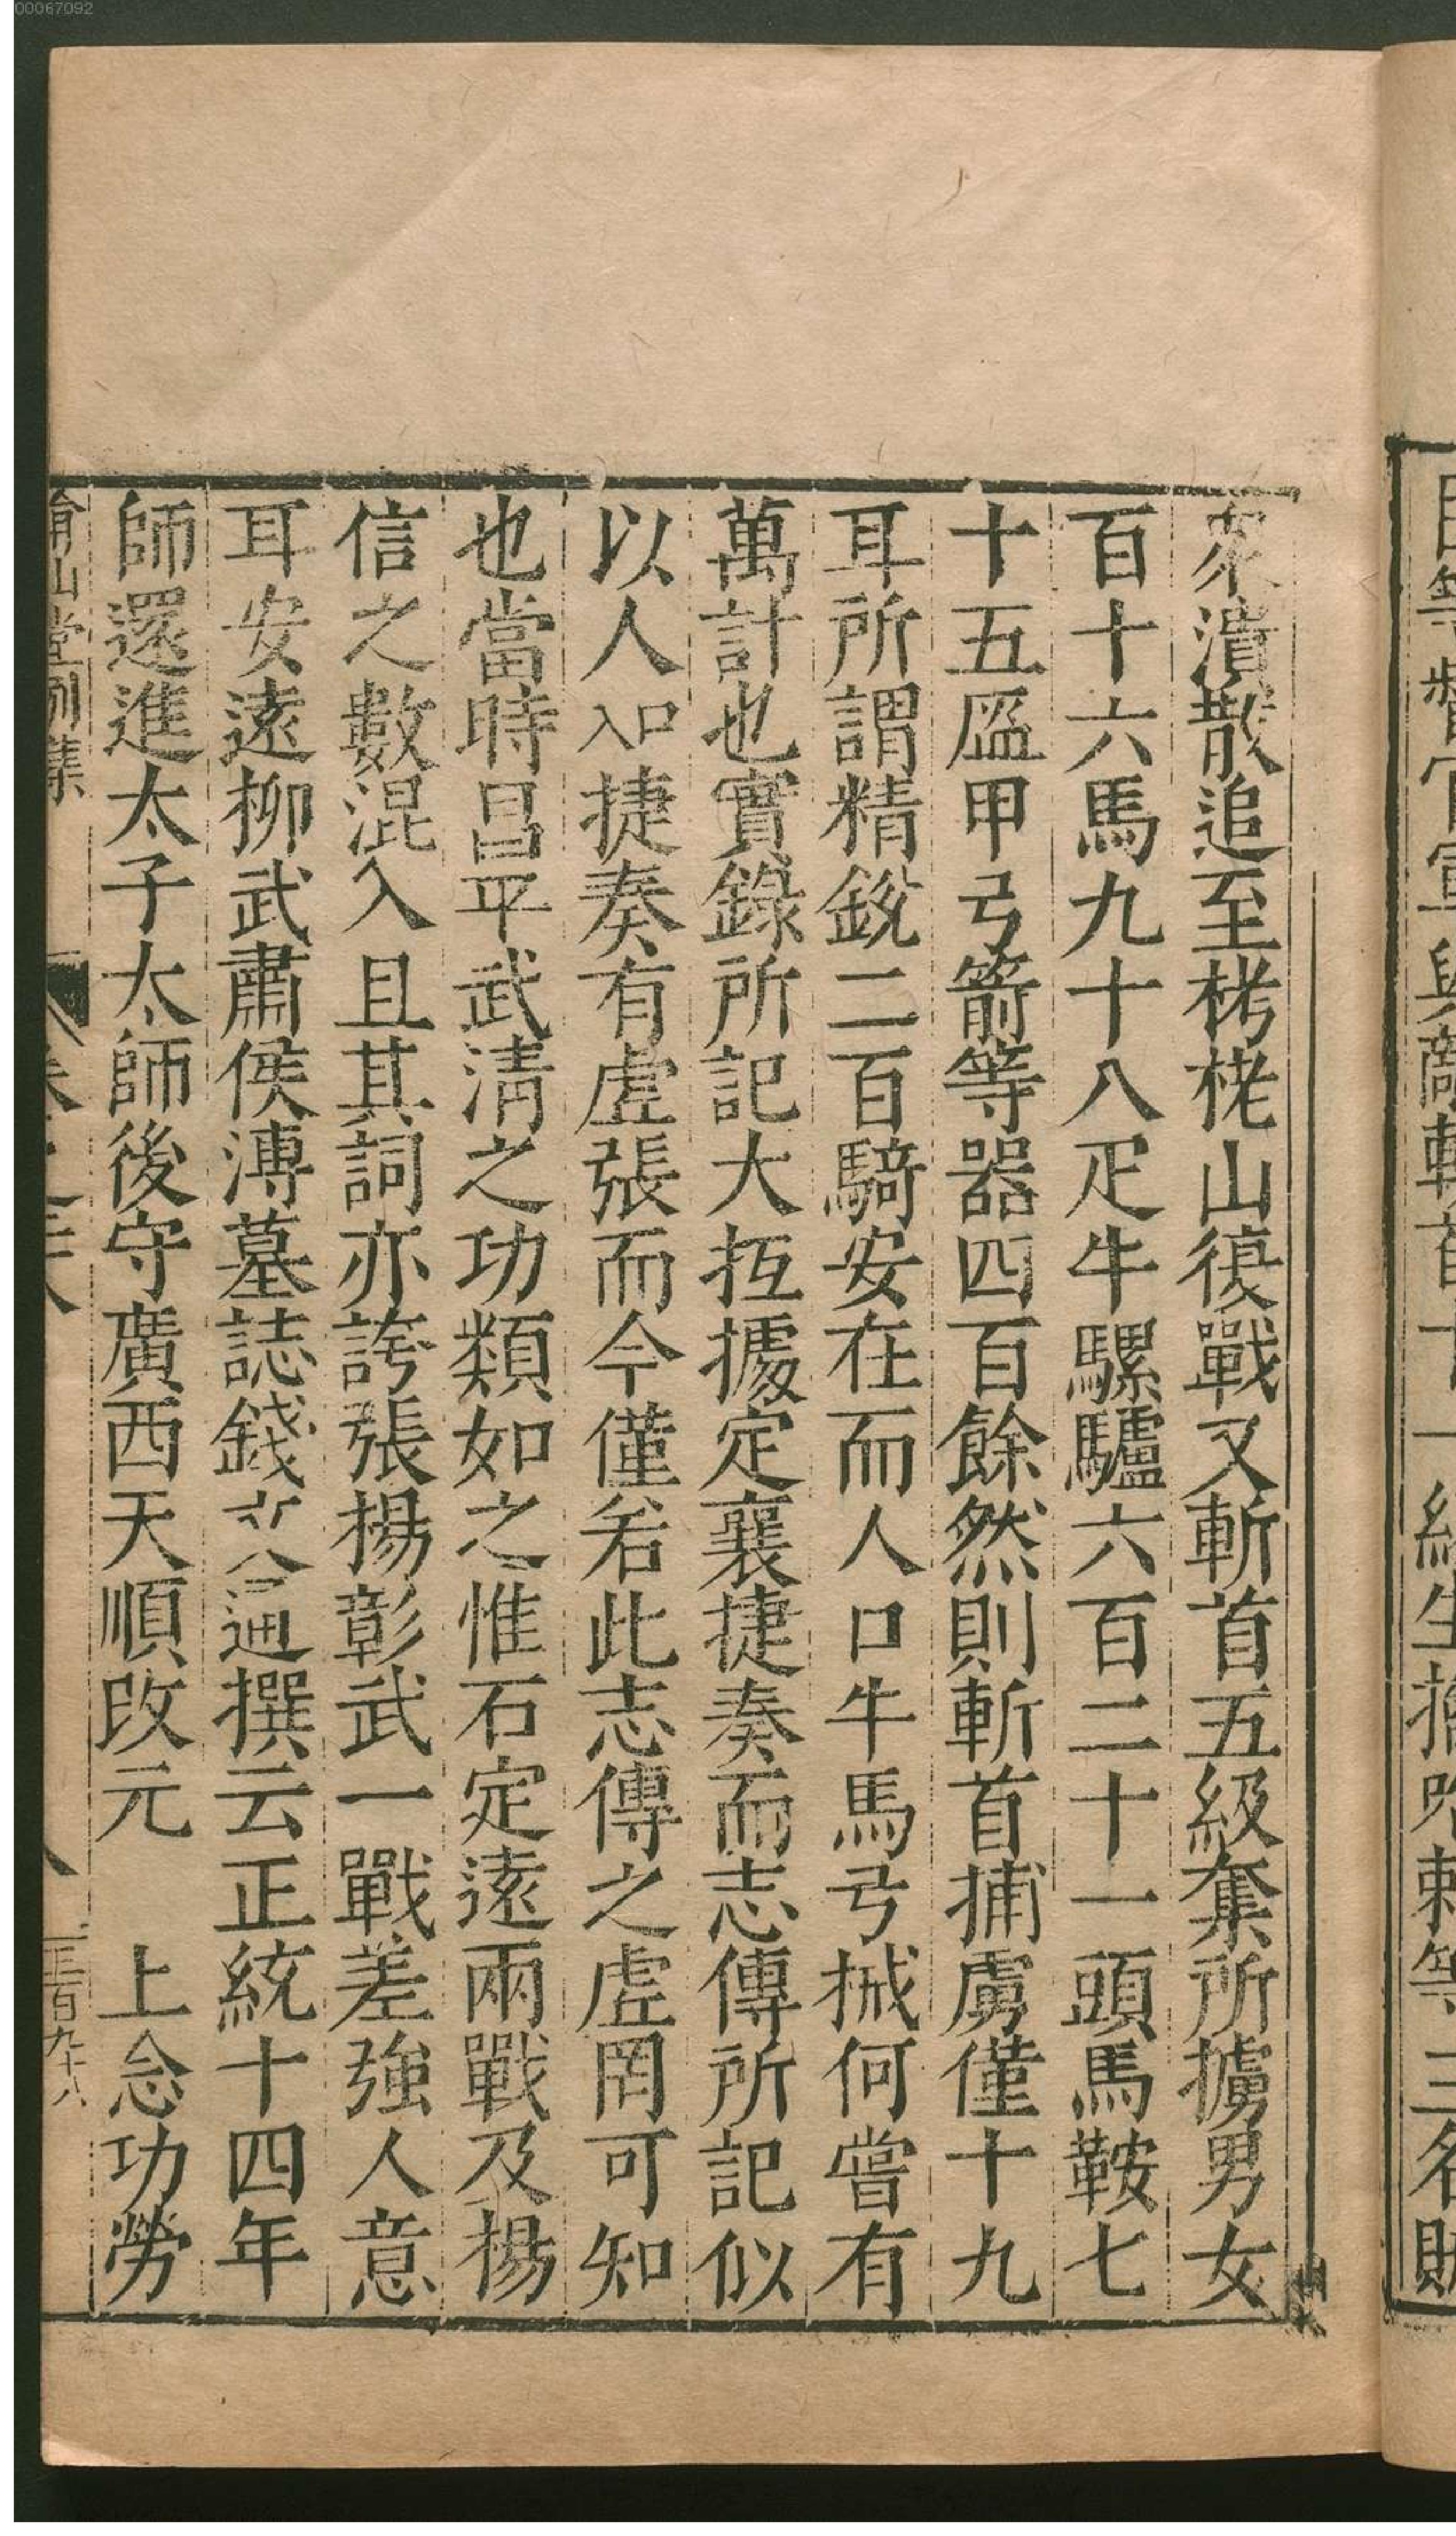 00067092
衆潰散追至栲栳山復戰又斬首五級奪所擄男女
百十六馬九十八疋牛騾驢六百二十一頭馬鞍七
十五盔甲弓箭等器四百餘然則斬首捕虜僅十九
耳所謂精銳二百騎安在而人口牛馬弓械何嘗有
萬計也實錄所記大抵據定襄捷奏而志傳所記似
以人入口捷奏有虛張而今僅若此志傳之虛罔可知
也當時昌平武清之功類如之惟石定遠兩戰及楊
信之數混入且其詞亦誇張揚彰武一戰差強人意
耳安遠柳武肅侯溥墓誌錢文通撰云正統十四年
師還進太子太師後守廣西天順改元 上念功勞
弇山堂別集
三百九十八